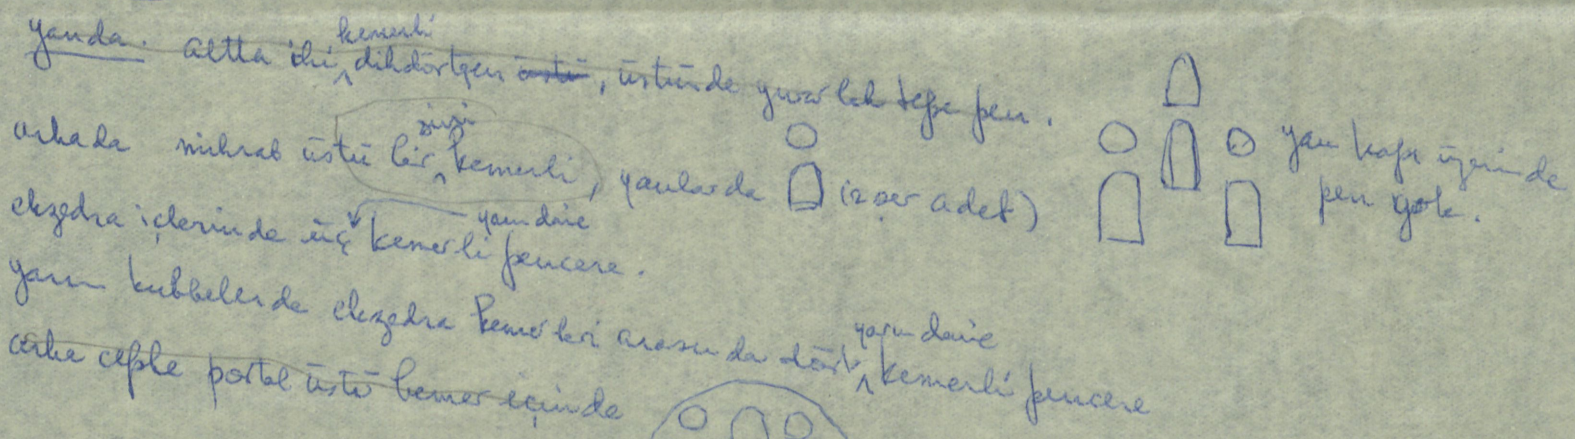 yanda. altta iki kemerli dikdörtgen üstü, üstünde yuvarlak tepe pen.
arkada mihrab üstü bir sivri kemerli, yanlarda (ikişer adet) yan kapı üzerinde pen yok.
ekzedra içlerinde üç yarım daire kemerli pencere.
yarım kubbelerde ekzedra kemerleri arasında dört yarım daire kemerli pencere
arka cephe portal üstü kemer içinde